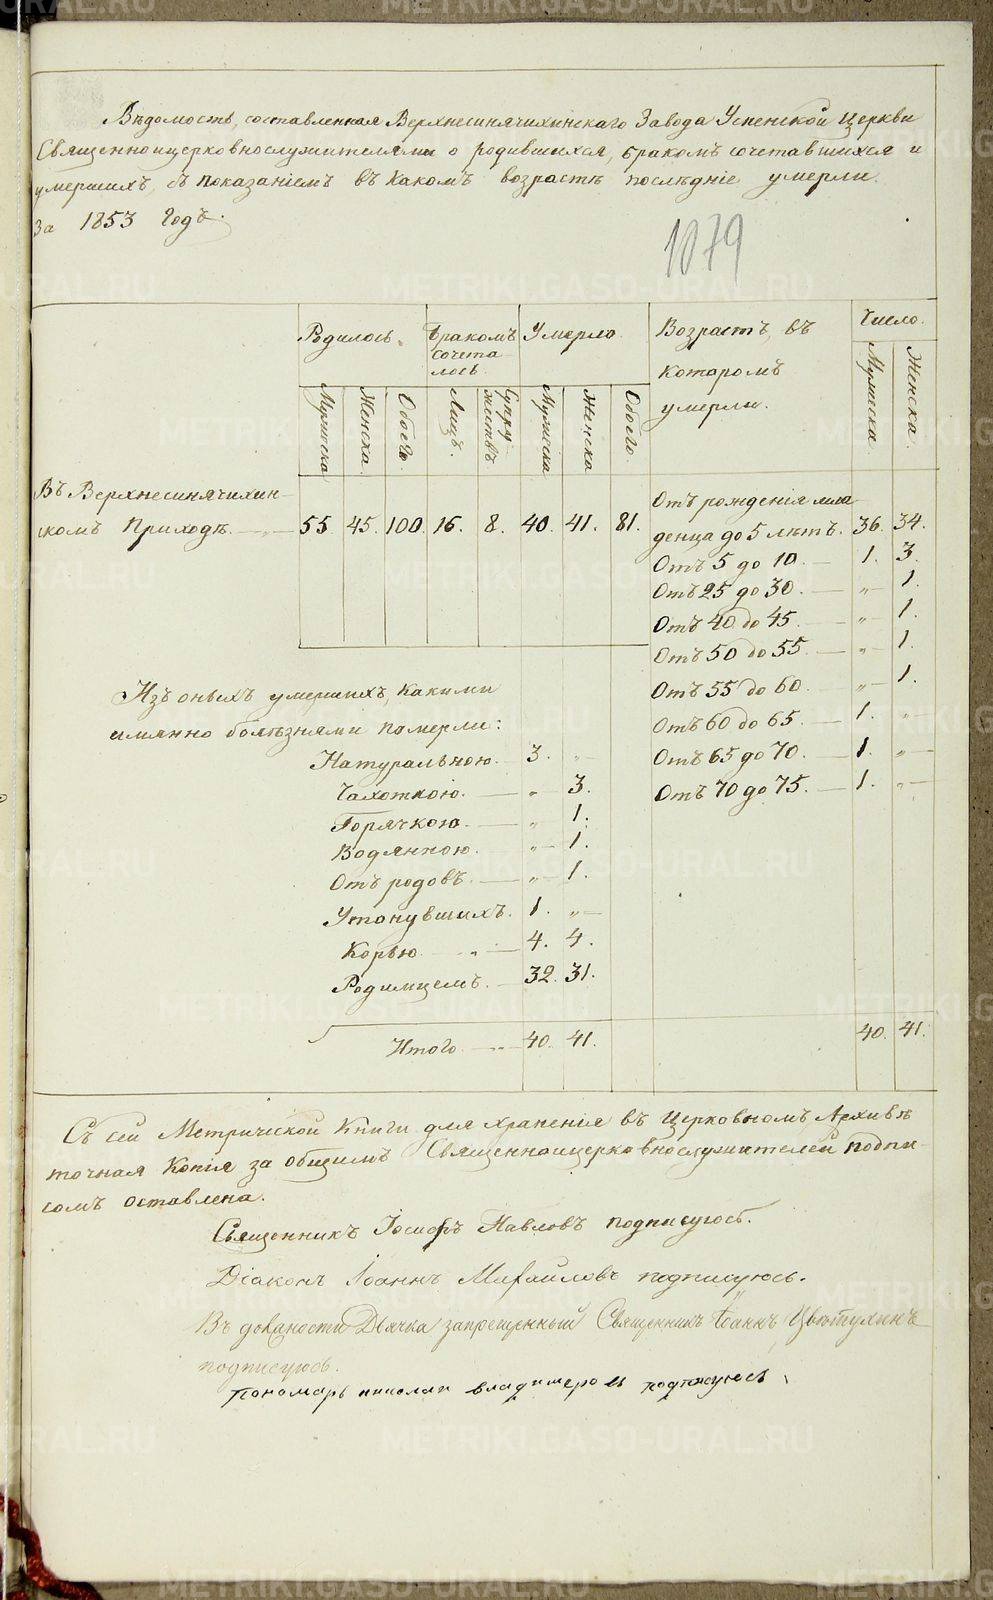 Вѣдомость, составленная Верхнесинячихинскаго Завода Успенской Церкви
Священноицерковнослужителями о родившихся, бракомъ сочетавшихся и
умершихъ, съ показаніемъ въ какомъ возрастѣ послѣдніе умерли.
За 1853 годъ.
1079
Родилось. Бракомъ сочета-лось. Умерло. Возрастъ, въ которомъ умерли. Число.
Мужеска Женска. Обоего. Лицъ. Супружествъ Мужеска Женска Обоего. Мужеска Женска.
Въ Верхнесинячихин-
скомъ Приходѣ. 55. 45. 100. 16. 8. 40. 41. 81.
Отъ рожденія мла-
денца до 5 лѣтъ. 36. 34.
Отъ 5 до 10. 1. 3.
Отъ 25 до 30. „ 1.
Отъ 40 до 45. „ 1.
Отъ 50 до 55. „ 1.
Отъ 55 до 60. „ 1.
Отъ 60 до 65. 1. „
Отъ 65 до 70. 1. „
Отъ 70 до 75. 1. „
Изъ оныхъ умершихъ, какими
имянно болѣзнями померли:
Натуральною. 3. „
Чахоткою. „ 3.
Горячкою. „ 1.
Водянною. „ 1.
Отъ родовъ. „ 1.
Утонувшихъ. 1. „
Корью „ 4. 4.
Родимцемъ. 32. 31.
Итого 40. 41. 40. 41.
Съ сей Метрической Книги для храненія въ Церковномъ Архивѣ
точная Копія за общимъ Священноицерковнослужителей подпи-
сомъ оставлена.
Священникъ Іосифъ Павловъ подписуюсь.
Діаконъ Іоаннъ Михайловъ подписуюсь.
Въ должности Дьячка запрещенный Священникъ Іоаннъ
подписуюсь.
Пономарь николаи владимеровъ подписуюсь
METRIKI.GASO-URAL.RU